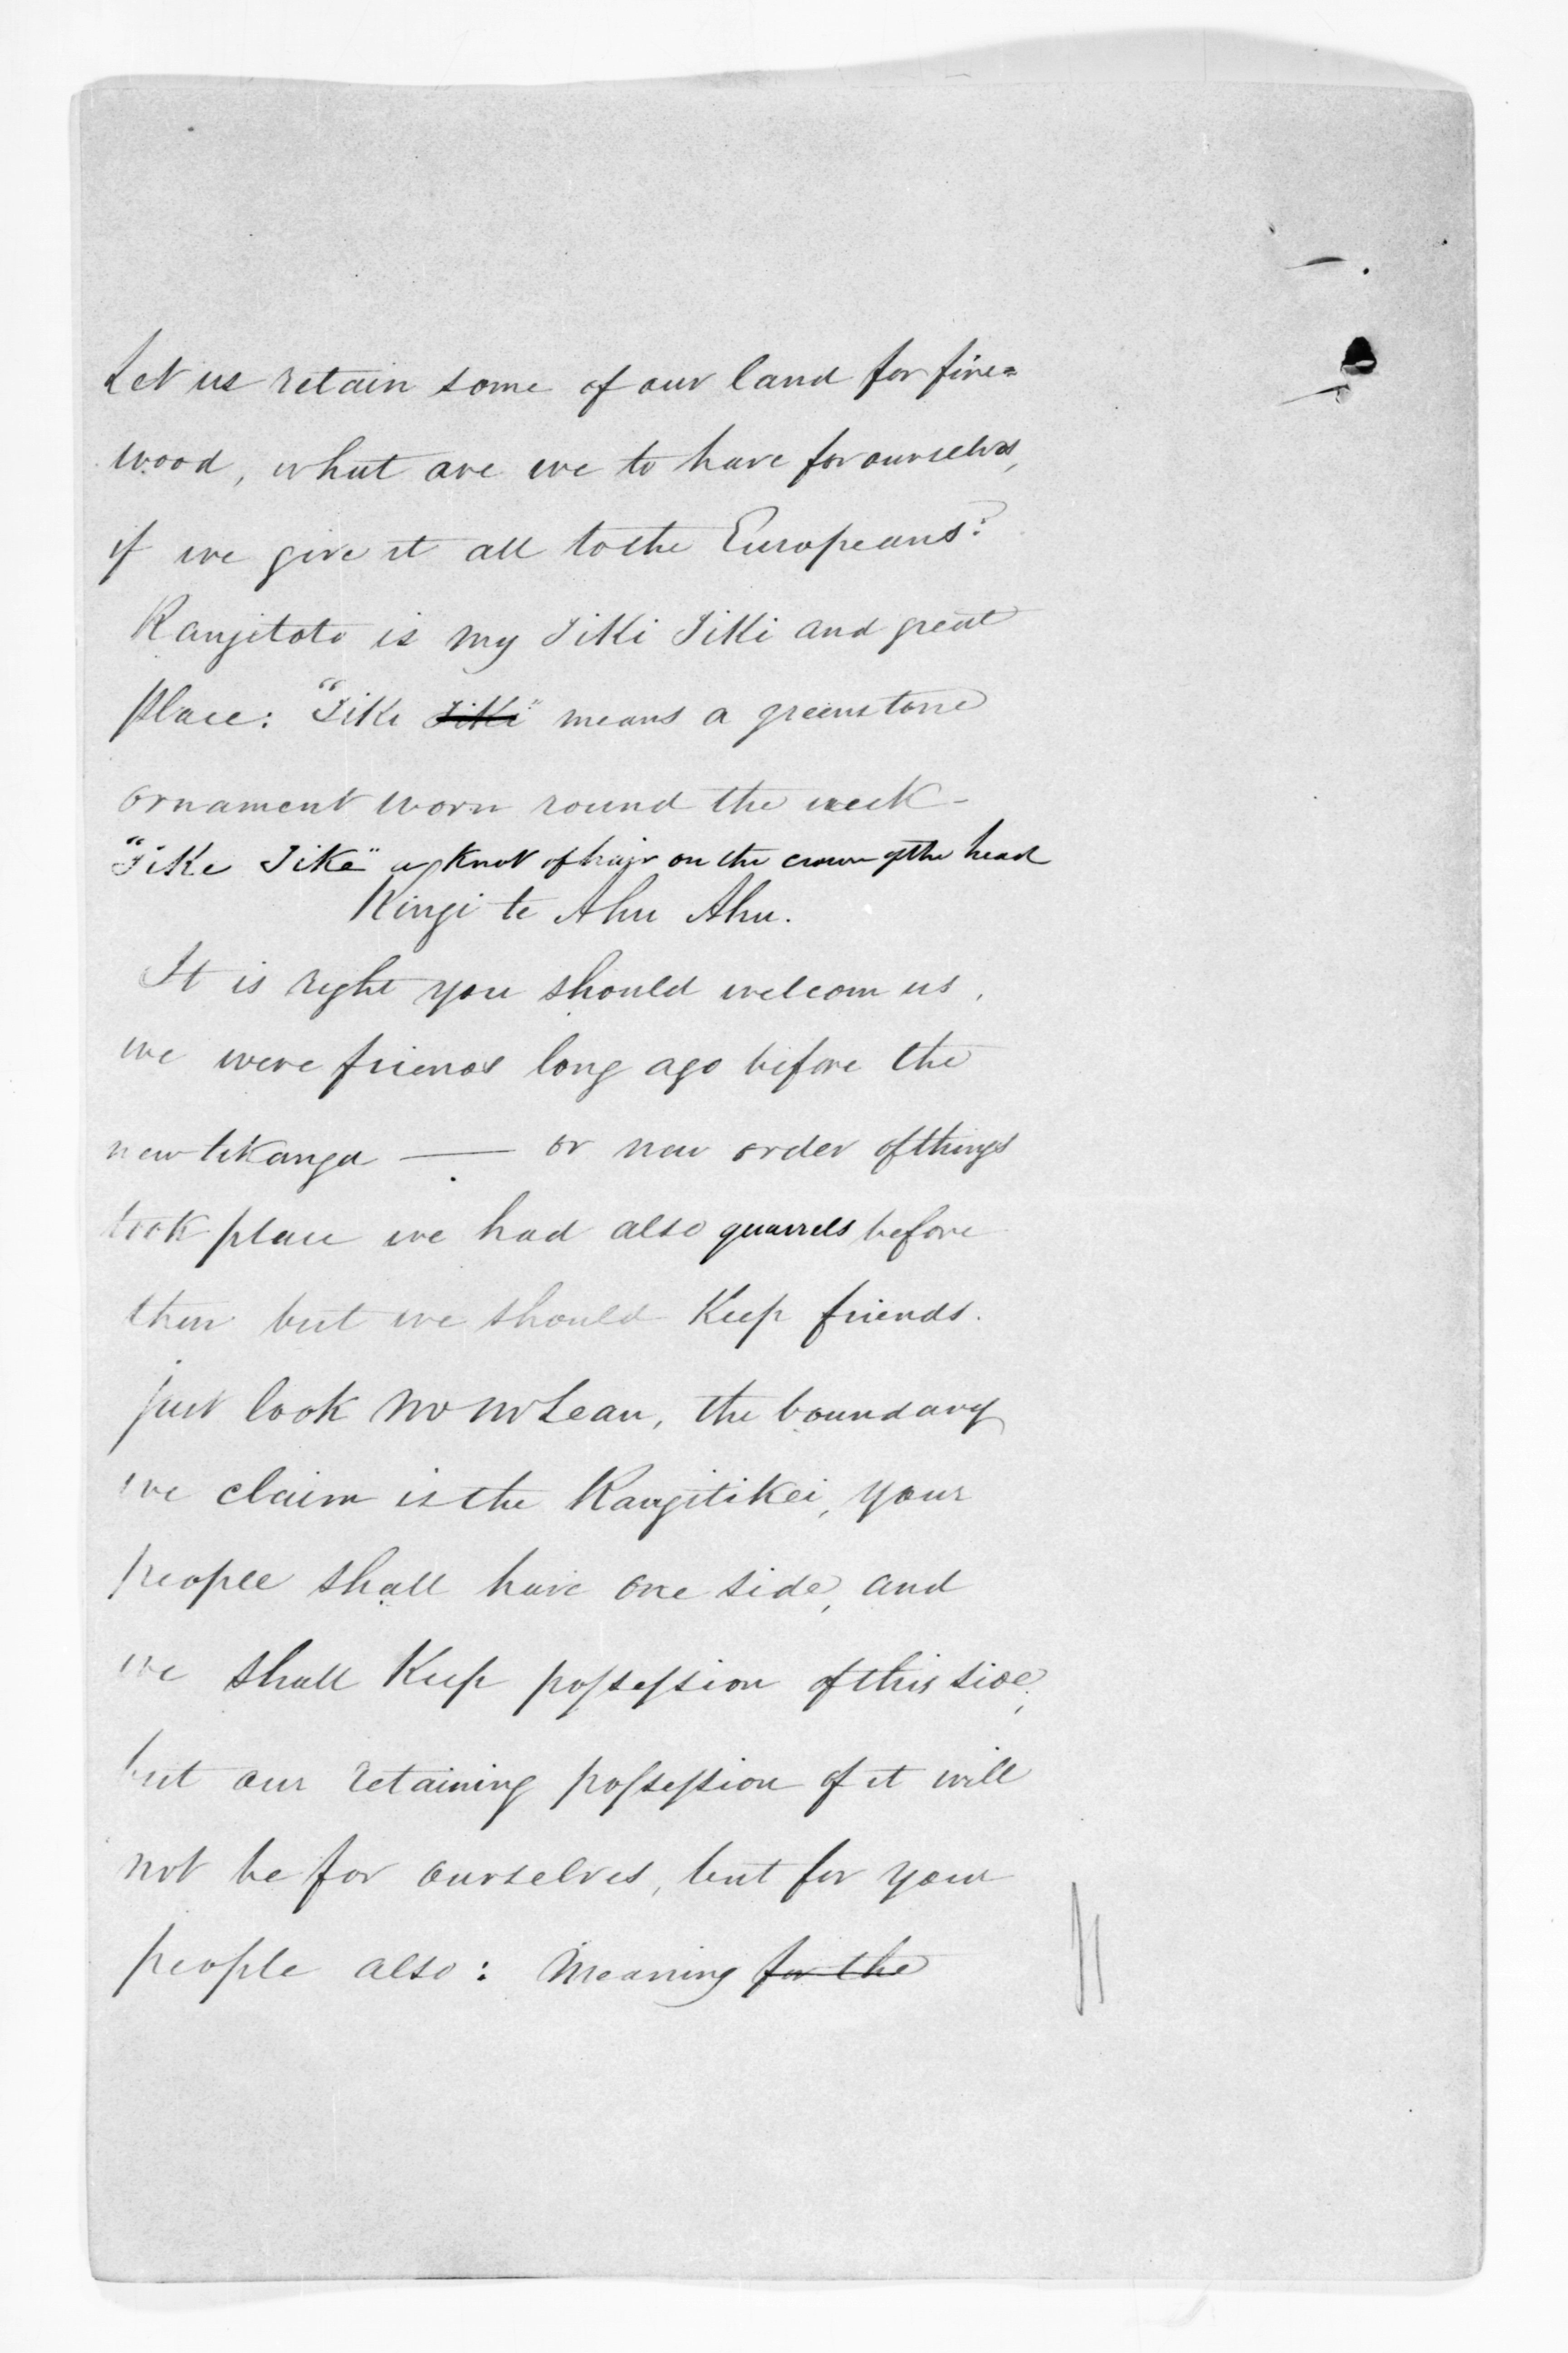 Let us retain some of our land for fire=
wood, what are we to have for ourselves,
if we give it all to the Europeans?
Rangitoto is my Tiki Tiki and great
place: "Tiki Tiki" means a greenstone
ornament worn round the neck -
"Tike Tike" a knot of hair on the crown of the head
Kingi te Ahu Ahu.
It is right you should welcom us,
we were friends long ago before the
new tikanga — or new order of things
took place we had also quarrels before
then but we should Keep friends.
just look Mr McLean, the boundary
we claim is the Rangitikei, your
people shall have one side, and
we shall Keep possession of this side,
but our retaining possession of it will
not be for ourselves, but for your
people also: Meaning for the